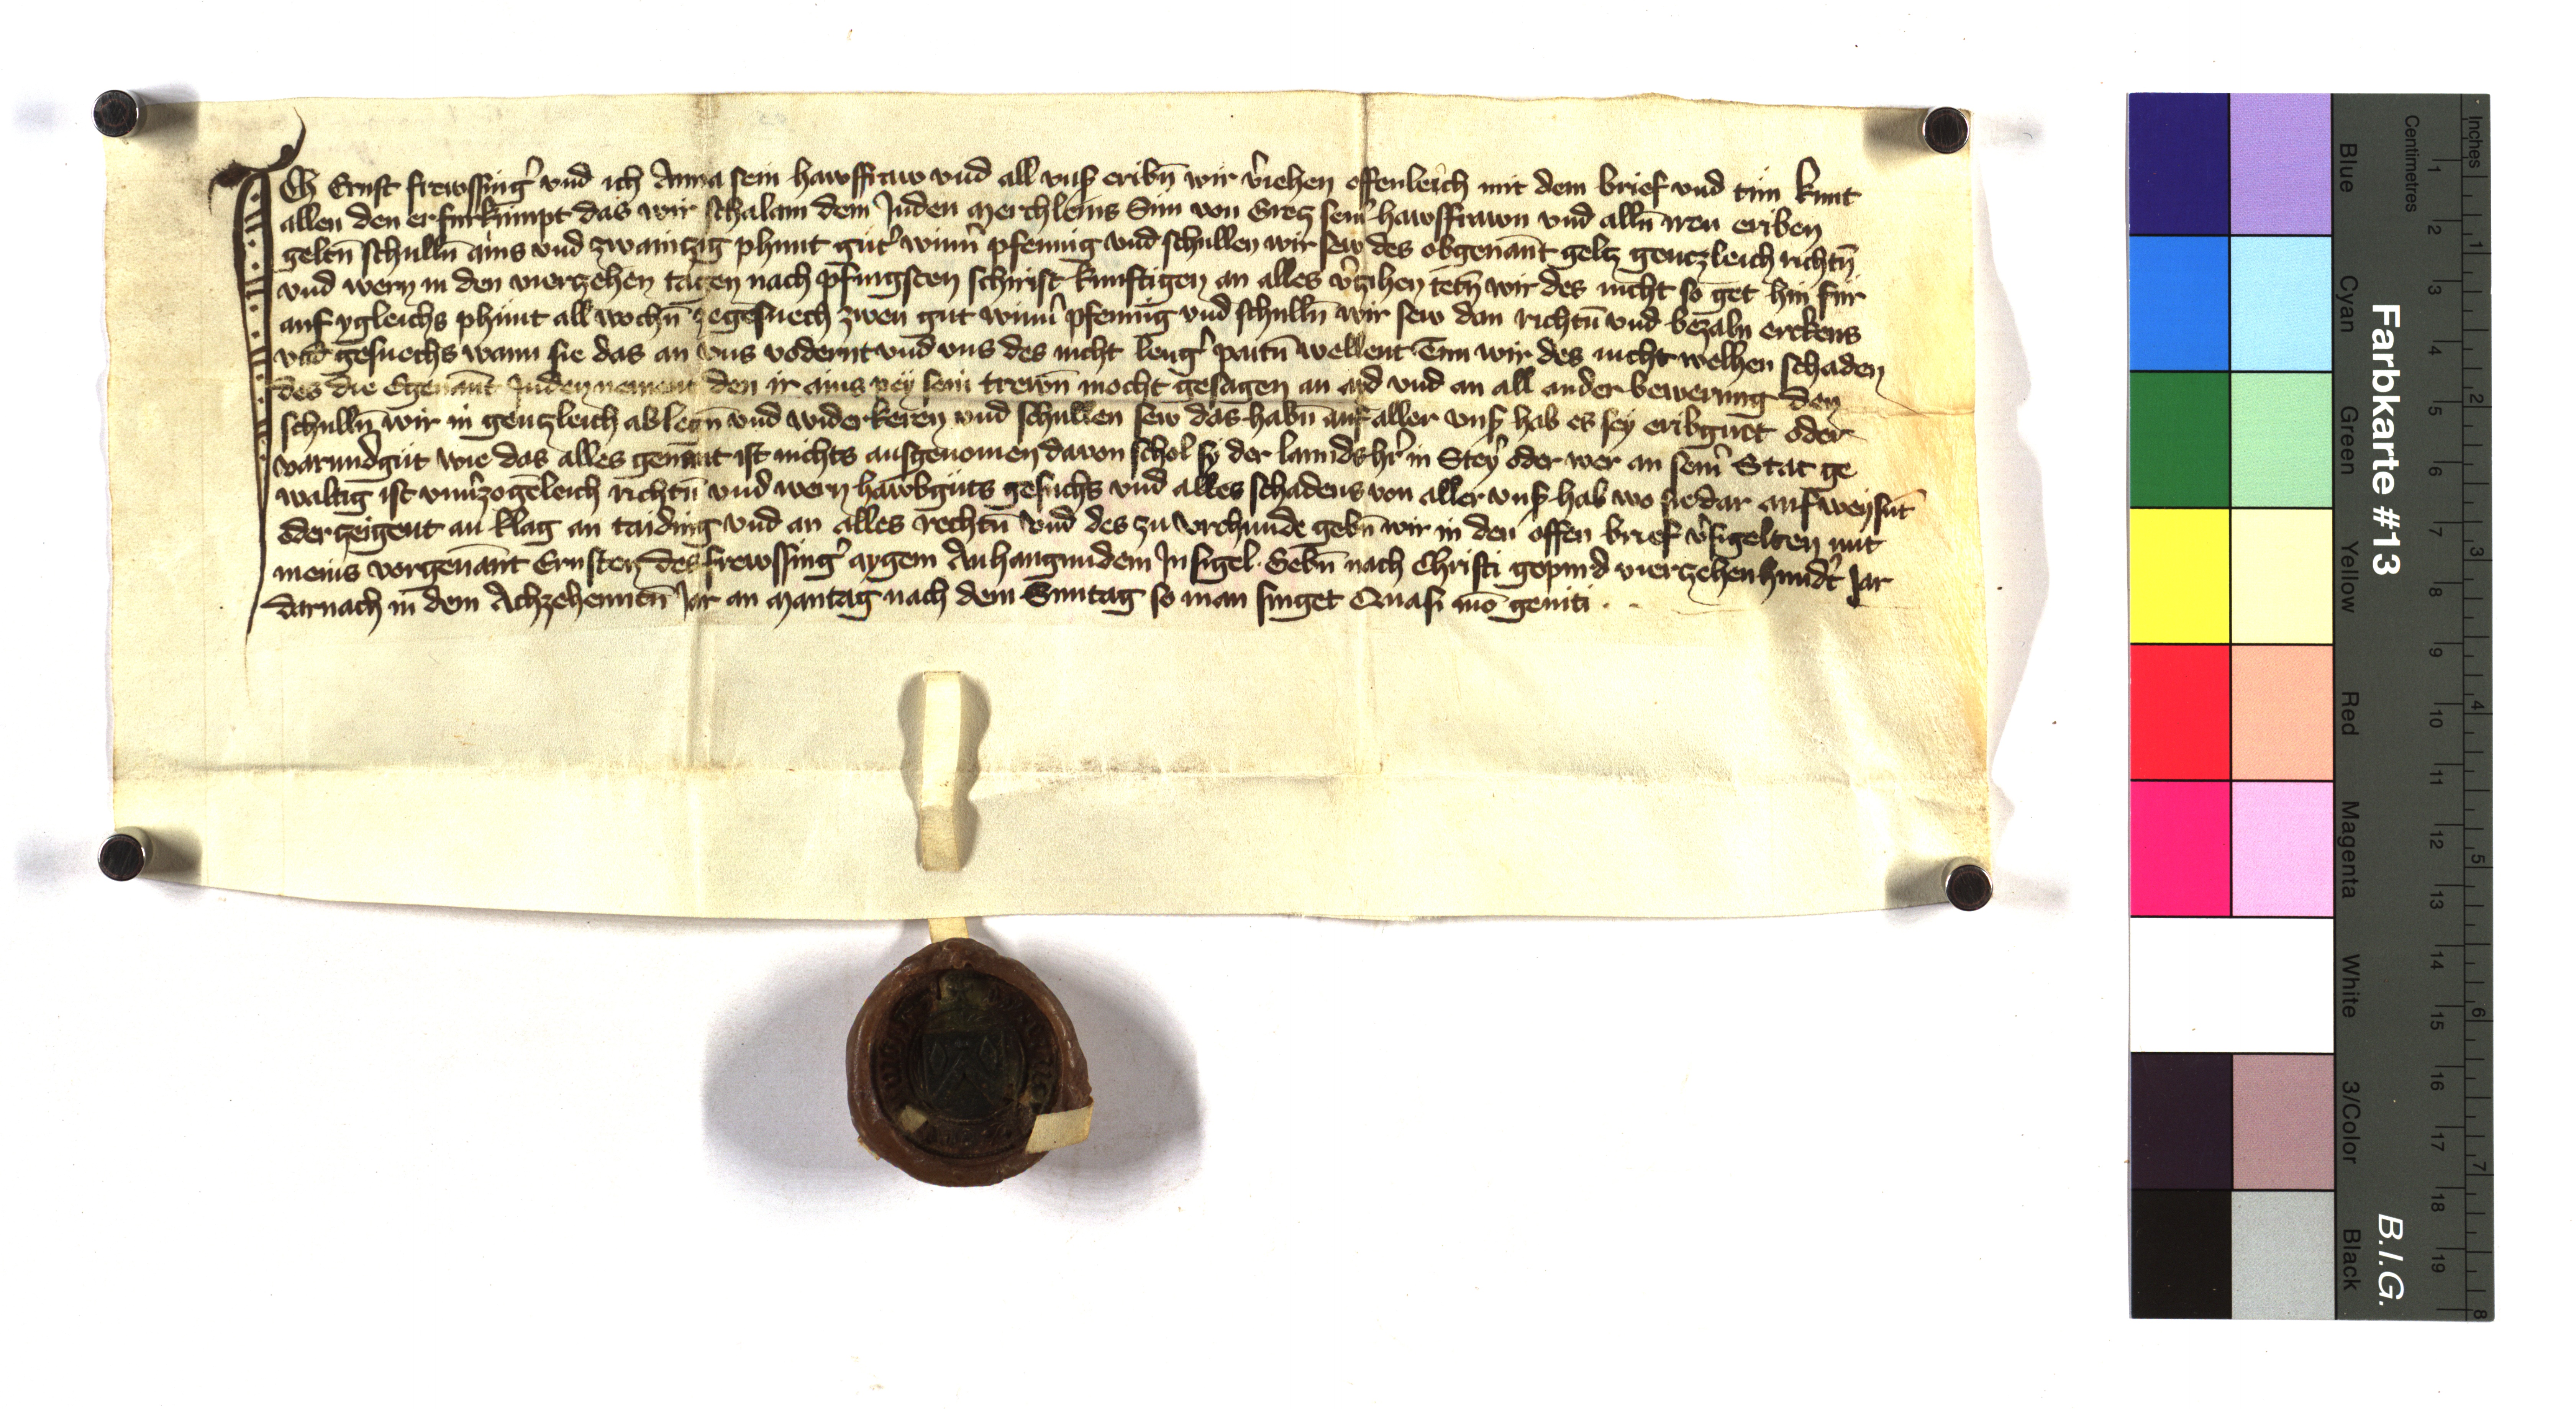 Ich Ernst frewssing͛ vnd ich Anna sein hawsfraw vnd all vns͛ eribn̄ wir v͛iehen offenleich mit dem brief vnd tun kunt
allen den er furkumpt das wir Schalam dem Juden Merchleins Sun von Grecz sein͛ hawsfrawn vnd alln̄ iren eriben
geltn̄ schulln̄ ains vnd zwainczig phunt gut͛ winn͛ pfennig vnd schullen wir sew des obgenan̄t geltz genczleich richtn̄
vnd wern in den vierzehen tagen nach pfingsten schirist kunftigen an alles v͛zihen tetn̄ wir des nicht so get hin fur
auf ygleichs phunt all wochn̄ ze gesuech zwen gut winn͛ pfennig vnd schulln̄ wir sew dan richtn̄ vnd bezaln erckens
vnd gesuechs wann sie das an vns vodernt vnd vns des nicht leng͛ paitn̄ wellent Tun wir des nicht welhen schaden
des die Egenan̄t Juden nement den ir ains pey sein trewn̄ mocht gesagen an aid vnd an all ander bewerung den
schulln̄ wir in genczleich ablegn̄ vnd widerkeren vnd schullen sew das habn̄ auf aller vns͛ hab es sey eribguet oder
varundgut wie das alles genan̄t ist nichts ausgenomen davon schol sy der lannds h͛r in Stey͛ oder wer an sein͛ Stat ge
waltig ist vnu͛zogeleich richtn̄ vnd wern hawbguts gesuchs vnd alles schadens von aller vns͛ hab wo sie dar auf weysn̄t
oder zeigent an klag an taiding vnd an alles rechtn̄ vnd des zu vrchunde gebn̄ wir in den offen brief v͛sigelten mit
meins vorgenan̄t Ernsten des frewssing͛ aygem Anhangundem Insigel Gebn̄ nach Christi gepurd vierzehenhundt͛ Jar
darnach in dem Achzehenntn̄ Jar an Mantag nach dem Sunntag so man singet Quasi mo͞ geniti
Farbkarte #13
B.I.G.
Centimetres
Inches
Blue
Cyan
Green
Yellow
Red
Magenta
White
3/Color
Black
1 2 3 4 5 6 7 8 9 10 11 12 13 14 15 16 17 18 19
1 2 3 4 5 6 7 8